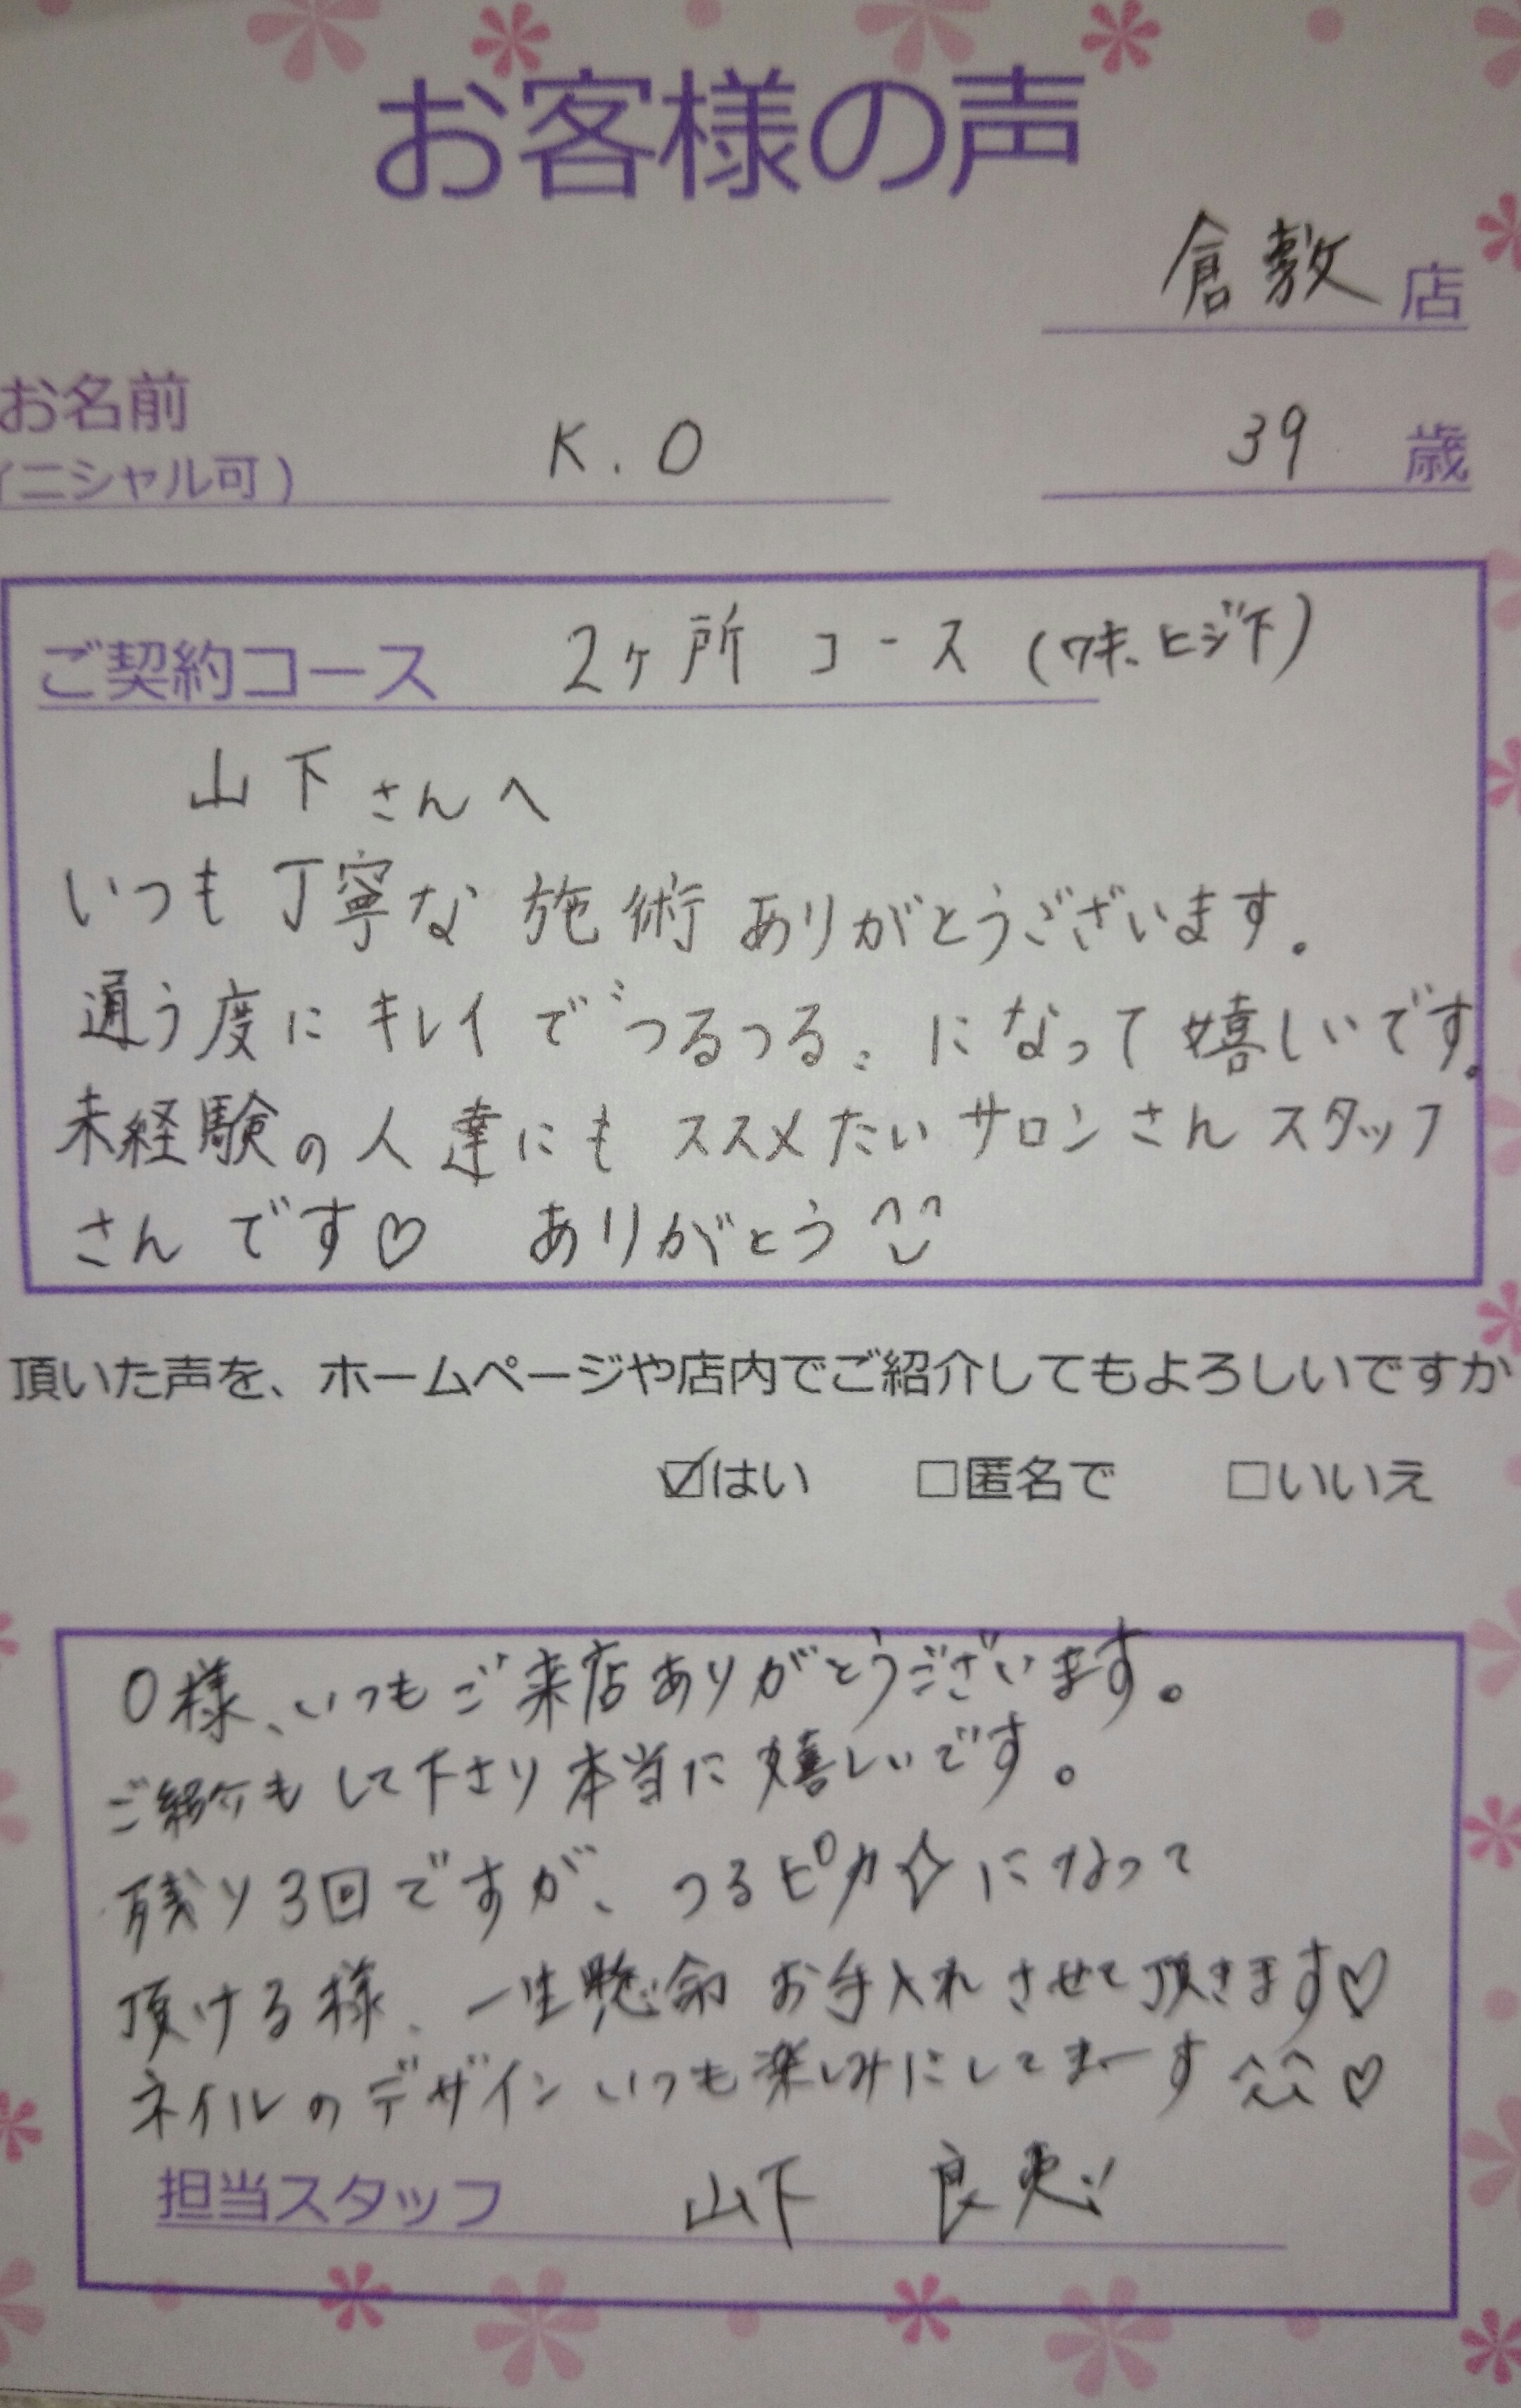 お客様の声
倉敷 店
お名前
イニシャル可) K.O 39 歳
ご契約コース 2ヶ所 コース (ワキ、ヒジ下)
山下さんへ
いつも丁寧な施術ありがとうございます。
通う度にキレイで〝つるつる〟になって嬉しいです。
未経験の人達にもススメたいサロンさんスタッフ
さんです♡ ありがとう^^
頂いた声を、ホームページや店内でご紹介してもよろしいですか
☑はい □匿名で □いいえ
O様、いつもご来店ありがとうございます。
ご紹介もして下さり本当に嬉しいです。
残り3回ですが、つるピカ☆になって
頂ける様、一生懸命お手入れさせて頂きます♡
ネイルのデザインいつも楽しみにしてまーす^^♡
担当スタッフ 山下 良恵